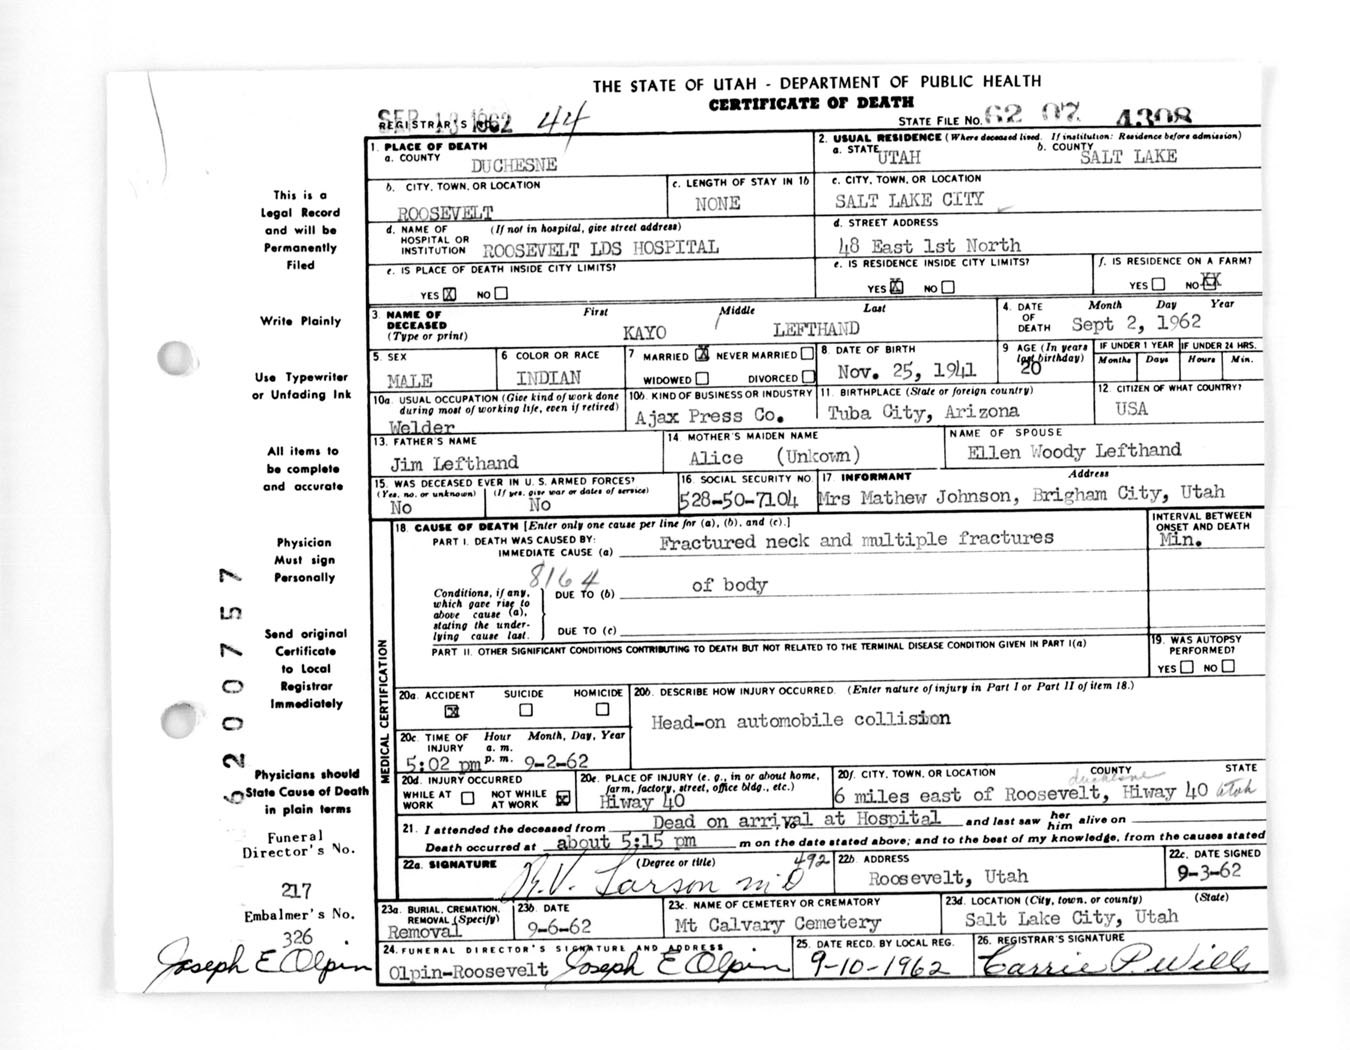 THE STATE OF UTAH - DEPARTMENT OF PUBLIC HEALTH
CERTIFICATE OF DEATH
SEP 13 1962 44
REGISTRAR'S NO.
STATE FILE NO. 62 07 4308
1. PLACE OF DEATH
a. COUNTY DUCHESNE
2. USUAL RESIDENCE (Where deceased lived. If institution: Residence before admission)
a. STATE UTAH b. COUNTY SALT LAKE
b. CITY, TOWN, OR LOCATION ROOSEVELT
c. LENGTH OF STAY IN 1b NONE
c. CITY, TOWN, OR LOCATION SALT LAKE CITY
d. NAME OF HOSPITAL OR INSTITUTION (If not in hospital, give street address) ROOSEVELT LDS HOSPITAL
d. STREET ADDRESS 48 East 1st North
e. IS PLACE OF DEATH INSIDE CITY LIMITS? YES X NO
e. IS RESIDENCE INSIDE CITY LIMITS? YES X NO
f. IS RESIDENCE ON A FARM? YES NO XX
3. NAME OF DECEASED (Type or print) First Middle Last
KAYO LEFTHAND
4. DATE OF DEATH Month Day Year
Sept 2, 1962
5. SEX MALE
6 COLOR OR RACE INDIAN
7 MARRIED X NEVER MARRIED
WIDOWED DIVORCED
8. DATE OF BIRTH Nov. 25, 1941
9 AGE (In years last birthday) 20
IF UNDER 1 YEAR Months Days
IF UNDER 24 HRS. Hours Min.
10a. USUAL OCCUPATION (Give kind of work done during most of working life, even if retired) Welder
10b. KIND OF BUSINESS OR INDUSTRY Ajax Press Co.
11. BIRTHPLACE (State or foreign country) Tuba City, Arizona
12. CITIZEN OF WHAT COUNTRY? USA
13. FATHER'S NAME Jim Lefthand
14. MOTHER'S MAIDEN NAME Alice (Unkown)
NAME OF SPOUSE Ellen Woody Lefthand
15. WAS DECEASED EVER IN U. S. ARMED FORCES?
(Yes, no. or unknown) No (If yes, give war or dates of service) No
16. SOCIAL SECURITY NO. 528-50-7104
17. INFORMANT Address
Mrs Mathew Johnson, Brigham City, Utah
MEDICAL CERTIFICATION
18. CAUSE OF DEATH [Enter only one cause per line for (a), (b), and (c).]
INTERVAL BETWEEN ONSET AND DEATH
PART I. DEATH WAS CAUSED BY:
IMMEDIATE CAUSE (a) Fractured neck and multiple fractures Min.
8164
Conditions, if any, which gave rise to above cause (a), stating the underlying cause last.
DUE TO (b) of body
DUE TO (c)
PART II. OTHER SIGNIFICANT CONDITIONS CONTRIBUTING TO DEATH BUT NOT RELATED TO THE TERMINAL DISEASE CONDITION GIVEN IN PART I(a)
19. WAS AUTOPSY PERFORMED?
YES NO
20a. ACCIDENT X SUICIDE HOMICIDE
20b. DESCRIBE HOW INJURY OCCURRED. (Enter nature of injury in Part I or Part II of item 18.)
Head-on automobile collision
20c. TIME OF INJURY Hour a. m. p. m. Month, Day, Year
5:02 pm 9-2-62
20d. INJURY OCCURRED
WHILE AT WORK NOT WHILE AT WORK X
20e. PLACE OF INJURY (e. g., in or about home, farm, factory, street, office bldg., etc.) Hiway 40
20f. CITY, TOWN, OR LOCATION COUNTY STATE
duchesne
6 miles east of Roosevelt, Hiway 40 Utah
21. I attended the deceased from Dead on arrival to at Hospital and last saw her him alive on
Death occurred at about 5:15 pm m on the date stated above; and to the best of my knowledge, from the causes stated
22a. SIGNATURE (Degree or title) 492
R.V. Larson MD
22b. ADDRESS Roosevelt, Utah
22c. DATE SIGNED 9-3-62
23a. BURIAL, CREMATION, REMOVAL (Specify) Removal
23b. DATE 9-6-62
23c. NAME OF CEMETERY OR CREMATORY Mt Calvary Cemetery
23d. LOCATION (City, town, or county) (State)
Salt Lake City, Utah
24. FUNERAL DIRECTOR'S SIGNATURE AND ADDRESS
Olpin-Roosevelt Joseph E Olpin
25. DATE RECD. BY LOCAL REG. 9-10-1962
26. REGISTRAR'S SIGNATURE Carrie P. Wills
This is a
Legal Record
and will be
Permanently
Filed
Write Plainly
Use Typewriter
or Unfading Ink
All items to
be complete
and accurate
Physician
Must sign
Personally
Send original
Certificate
to Local
Registrar
Immediately
Physicians should
State Cause of Death
in plain terms
Funeral
Director's No.
217
Embalmer's No.
326
Joseph E Olpin
6200757